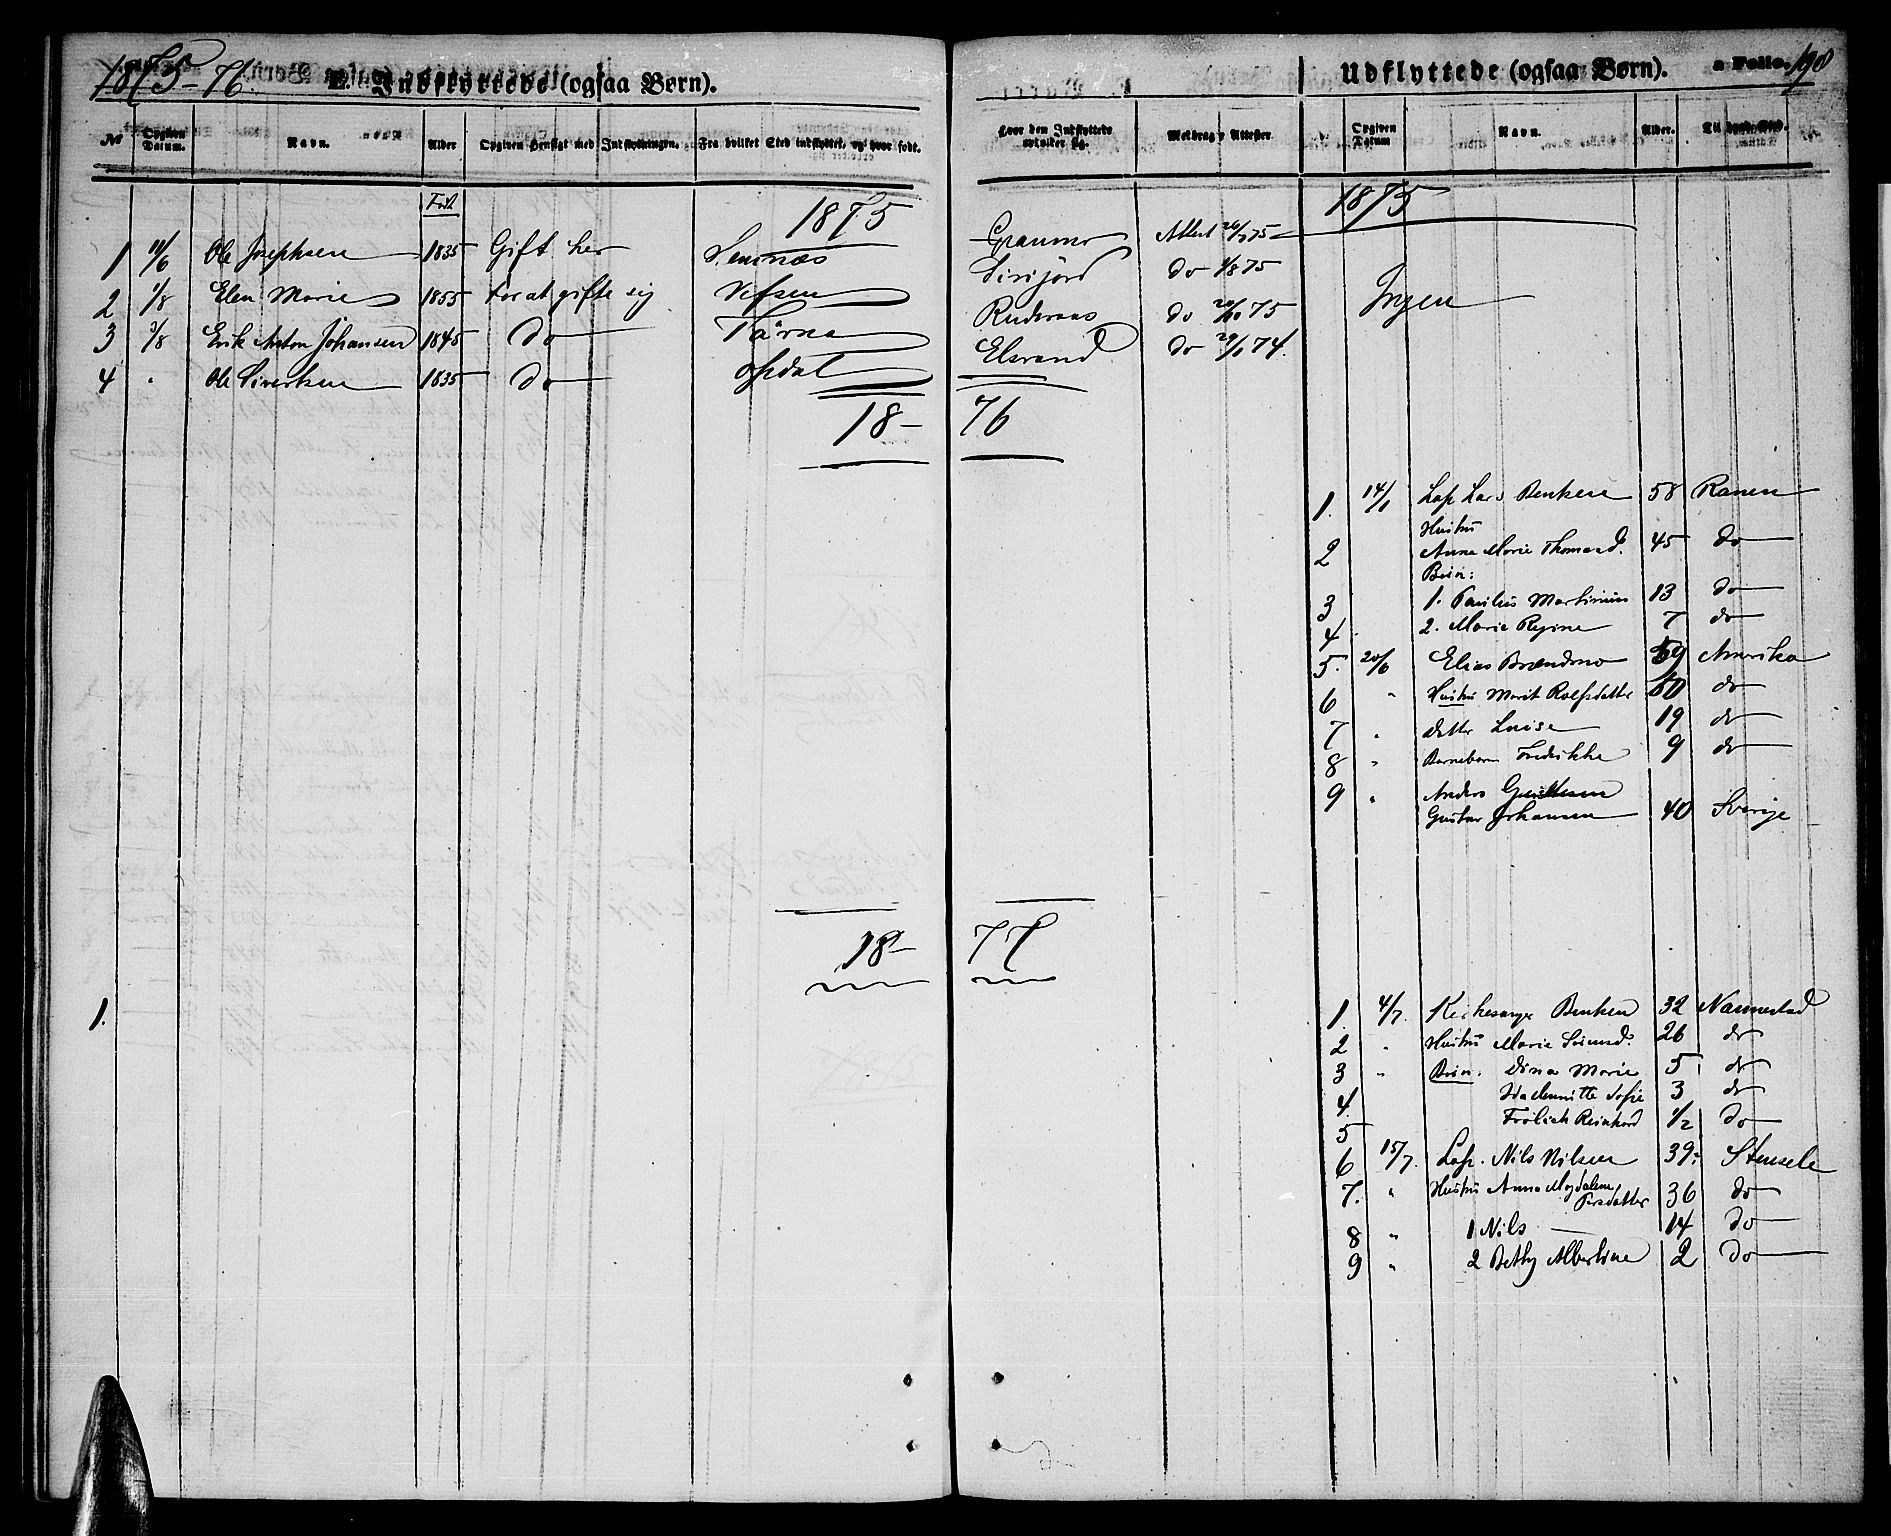 1875-76.
Indflyttede (ogsaa Børn).
Udflyttede (ogsaa Børn).
Folio. 198
№ Opgiven Datum. Navn. Alder Opgiven Hensigt med Indflytningen. Fra hvilket Sted indflyttet, og hvor født.
Hvor den Indflyttede opholder sig. Attester
Opgiven Datum Navn. Alder. Til hvad Sted.
Født 1875
1 11/6 Ole Josephsen 1835 Gift her Granmo Attest 75
2 1/8 Elen Marie 1855 For at gifte sig Vefsen Sirijord do 1/8 75
3 3/8 Erik Anton Johansen 1845 do Tärna do 75
4 " Ole Sivertsen 1835 do Opdal do 74.
1875
Ingen
18-76
1. 14/1 Lap Lars Bentsen 58 Ranen
Hustru
2 Anna Marie Thomasd. 45 do
Børn:
3 1. Paulus Martinius 13 do
4 2. Marie Regine 7 do
5. 20/6 Elias Brændmo 59 Amerika
6 " Hustru Marit Rolfsdatter 50 do
7 " datter Luise 19 do
8 " Barnebarn Fredrikke 9 do
9 " Anders
Gustav Johansen 40 Sverige
18-77
1.
1. 4/7. Kirkesanger Bentsen 32 Nannestad
2 " Hustru Marie Simsd. 26 do
3 " Børn: Dina Marie 5 do
4. Sofie 3 do
5 Frölich Reinhard 1/2 do
6 15/7. Lap. Nils Nilsen 39 Stensele
7. " Hustru Anna Magdalena Persdatter 36 do
8 " 1 Nils 14 do
9 " 2 Bethy Albertine 2 do